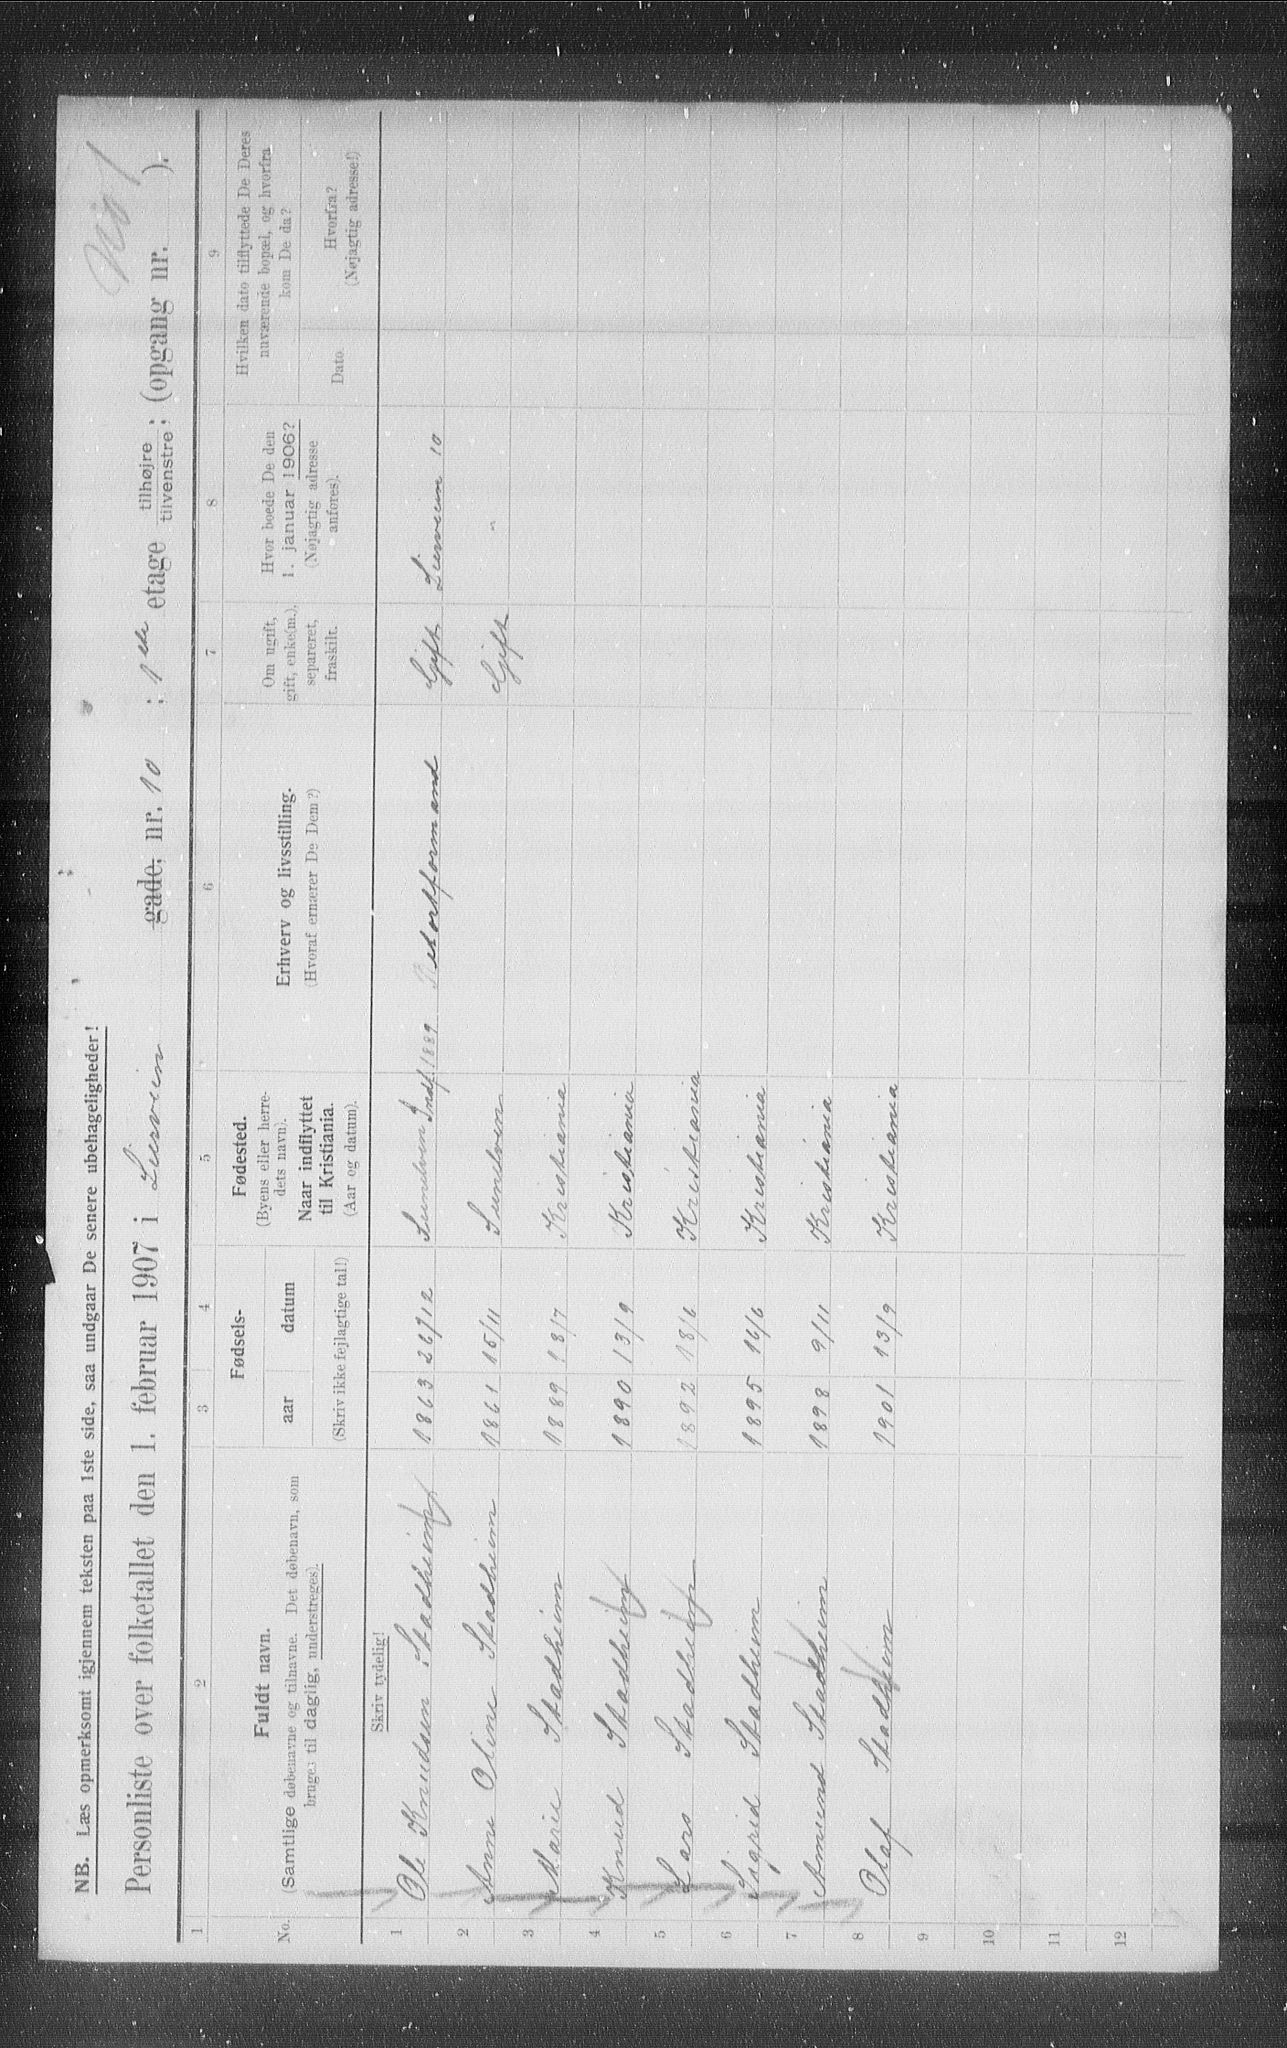 NB. Læs opmerksomt igjennem teksten paa 1ste side, saa undgaar De senere ubehageligheder!
Personliste over folketallet den 1. februar 1907 i gade, nr. 10 ; 1 etage tilhøjre tilvenstre; (opgang nr. ).
1 2 3 4 5 6 7 8 9
No.
Fuldt navn.
(Samtlige døbenavne og tilnavne. Det døbenavn, som
bruges til daglig, understreges).
Fødsels-
aar datum
(Skriv ikke fejlagtige tal!)
Fødested.
(Byens eller herre-
dets navn).
Naar indflyttet
til Kristiania.
(Aar og datum).
Erhverv og livsstilling.
(Hvoraf ernærer De Dem?)
Om ugift,
gift, enke(m.),
separeret,
fraskilt.
Hvor boede De den
1. januar 1906?
(Nøjagtig adresse
anføres).
Hvilken dato tilflyttede De Deres
nuværende bopæl, og hvorfra
kom De da?
Dato.
Hvorfra?
(Nøjagtig adresse!)
Skriv tydelig!
1 Ole Knudsen Stadheim 1863 26/12 Indf. 1889 Retortformand Gift 10
2 Anne Oline Stadheim 1861 15/11 Gift "
3 Marie Stadheim 1889 18/7 Kristiania
4 Knud Stadheim 1890 13/9 Kristiania
5 Lars Stadheim 1892 18/6 Kristiania
6 Sigrid Stadheim 1895 16/6 Kristiania
7 Amund Stadheim 1898 9/11 Kristiania
8 Olaf Stadheim 1901 13/9 Kristiania
9
10
11
12